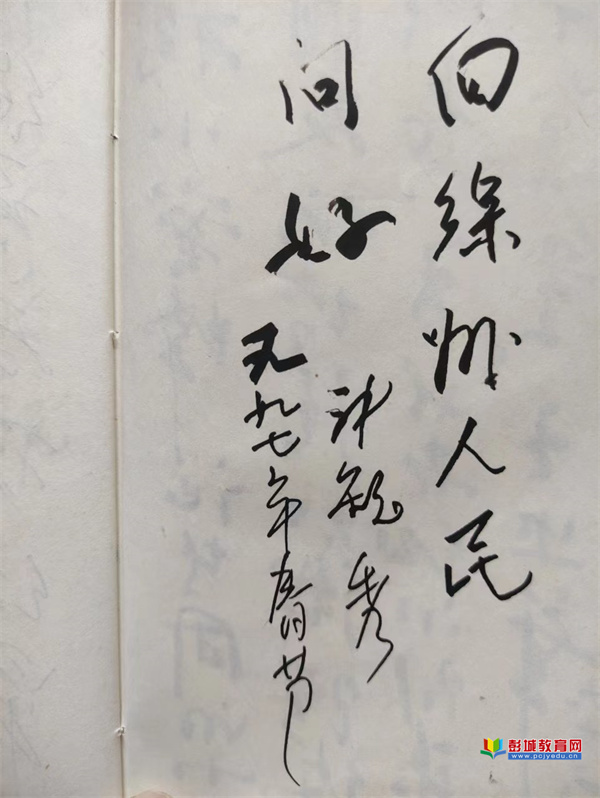 向徐州人民
问好
秀
一九九七年春节
彭城教育网
www.pcjyedu.cn